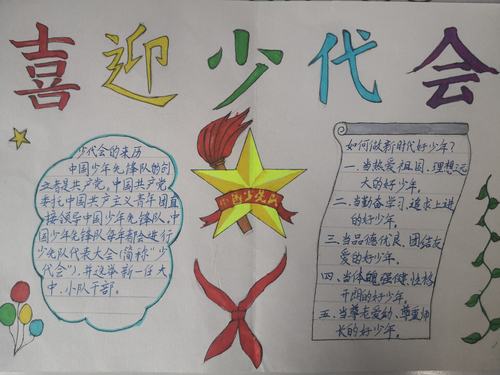 喜迎少代会
少代会的来历
中国少年先锋队的创
立者是共产党。中国共产党
委托共产主义青年团直
接领导中国少年先锋队、中
国少年先锋队每年都会进行
少先队代表大会(简称“少
代会”),并选举新一任大
中、小队干部。
中国少先队
如何做新时代好少年?
一、当热爱祖国、理想远
大的好少年。
二、当勤奋学习、追求上进
的好少年。
三、当品德优良、团结友
爱的好少年。
四、当体魄强健、性格
开朗的好少年。
五、当尊老爱幼、尊重师
长的好少年。